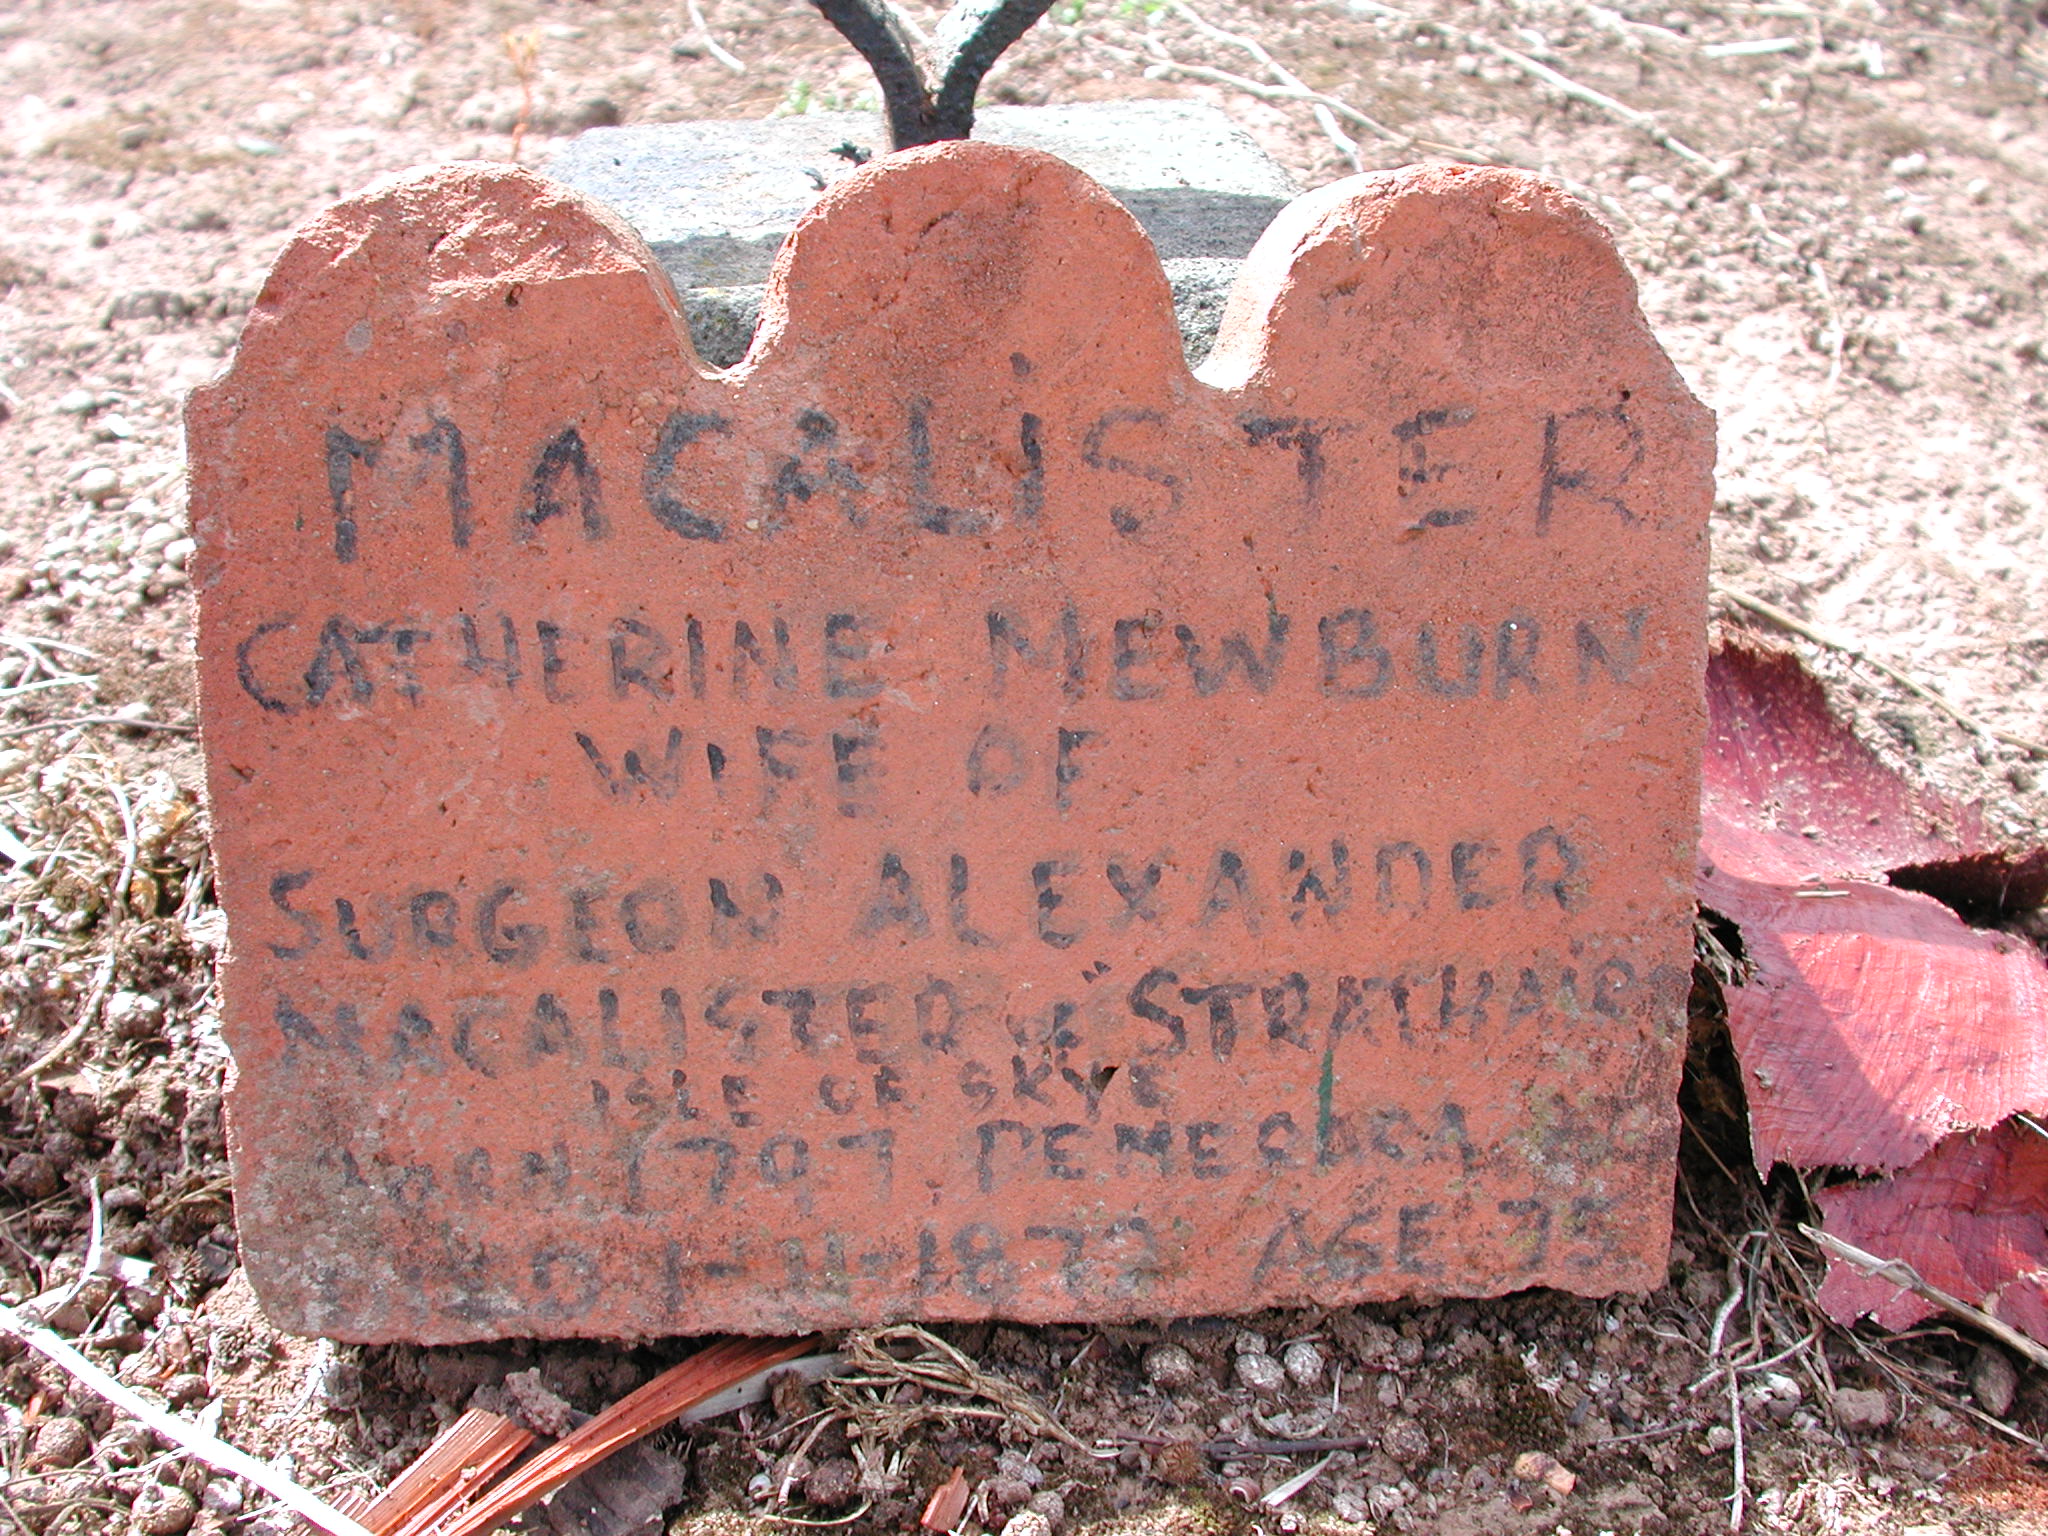 MACALiSTER
CATHERINE MEWBURN
WIFE OF
SURGEON ALEXANDER
MACALISTER of "STRATHAIRD
ISLE OF SKYE
BORN 1797 DEMERARA
DIED 1-11-1872 AGE 75